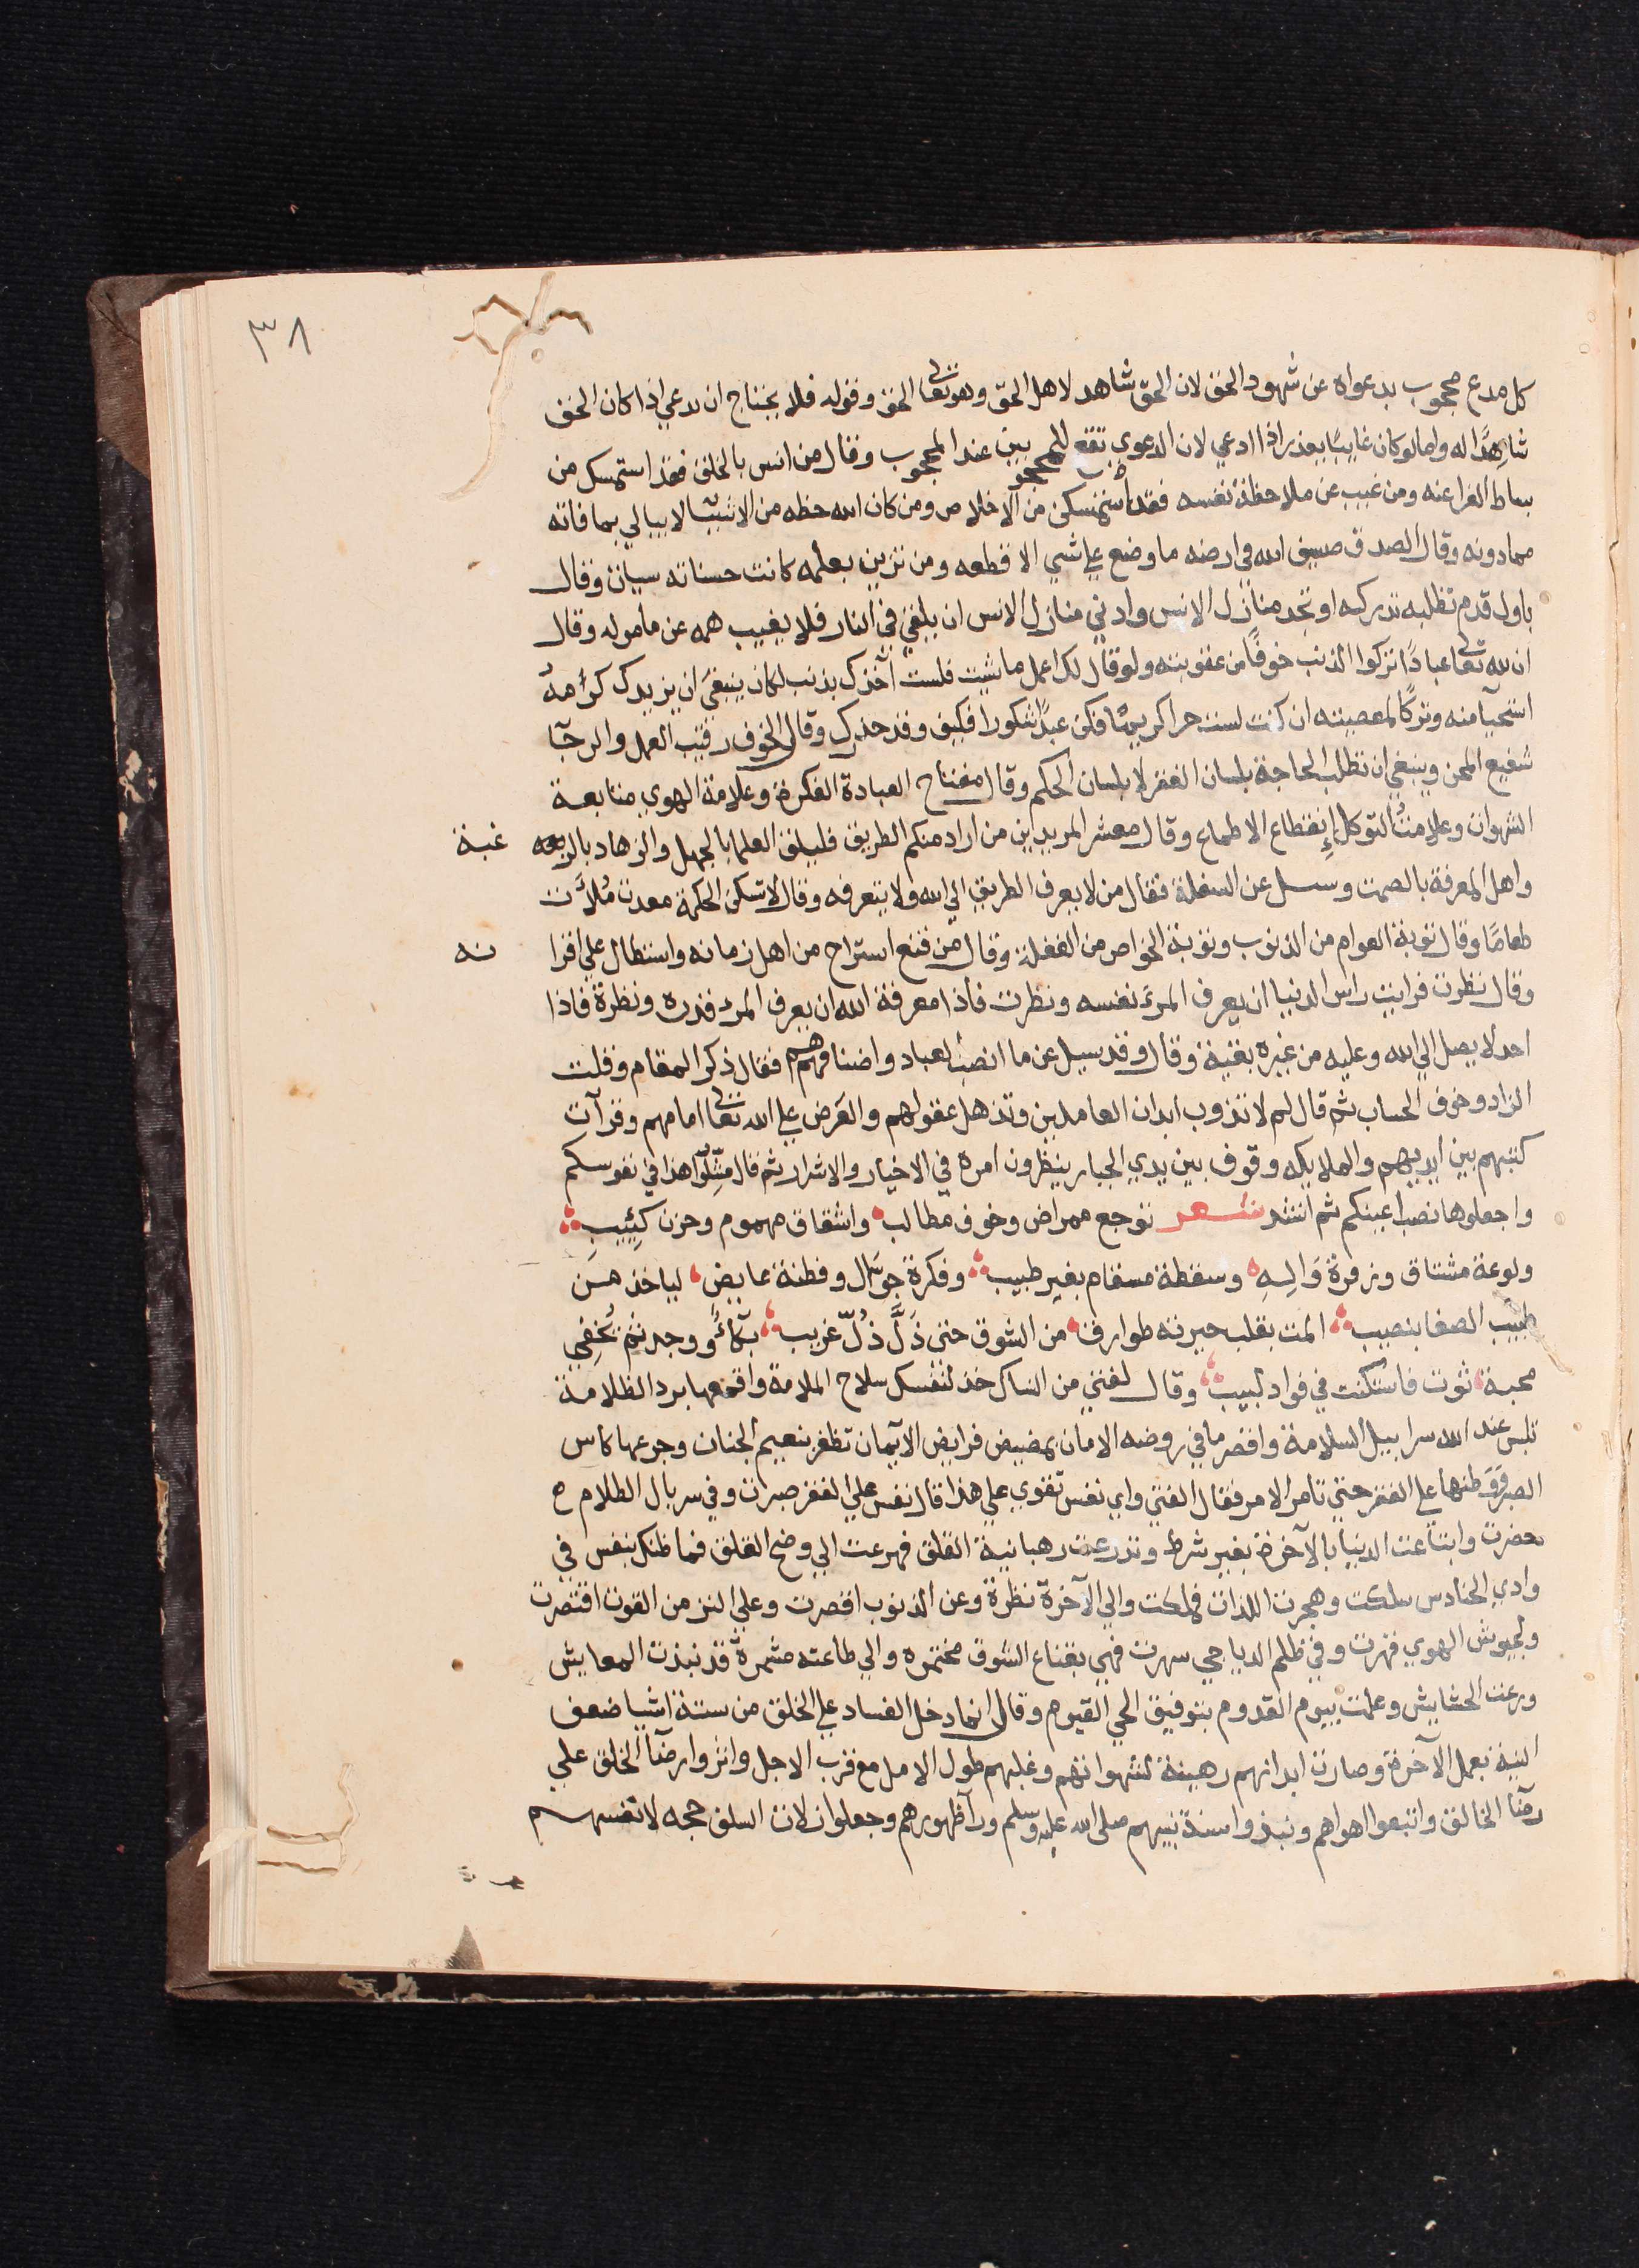 ٣٨
كل مدع محجوب بدعواه عن شهود الحق لان الحق شاهد لاهل الحق وهو تعالى الحق وقوله فلا يحتاج ان يدعي اذا كان الحق
شاهِدًا له واما لو كان غايبًا يعذر اذا ادعي لان الدعوي تقع للمحجوبين عند المحجوب وقال من انس بالخلق فقد استمسك من
بساط الفراعنه ومن غيب عن ملاحظة نفسه فقد استمسك من الاخلاص ومن كان الله حظه من الاشيا لا يبالي بما فاته
مما دونه وقال الصدق سيف الله في ارضه ما وضع علي شي الا قطعه ومن تزين بعلمه كانت حسناته سيات وقال
باول قدم تطلبه تدركه او تجد منازل الانس وادني منازل الانس ان يلقي في النار فلا يغيب همه عن ماموله وقال
ان لله تعالى عبادًا تركوا الذنب خوفًا من عقوبته ولو قال لك اعمل ما شيت فلست آخذك بذنب لكان ينبغي ان يزيدك كرامه
استحيآ منه وتركًا لمعصيته ان كنت لست حرا كريمًا فكن عبدًا شكورا فكيف وقد حذرك وقال الخوف رقيب العمل والرجآ
شفيع المحن وينبغي ان تطلب الحاجة بلسان الفقر لا بلسان الحكم وقال مفتاح العبادة الفكرة وعلامة الهوي متابعة
الشهوات وعلامتُ التوكل إنقطاع الاطماع وقال معشر المريدين من اراد منكم الطريق فليلق العلما بالجهل والزهاد بالرغبة
واهل المعرفة بالصمت وسيل عن السفلة فقال من لا يعرف الطريق الي الله ولا يتعرفه وقال لا تسكن الحكمة معدت مُلأت
طعامًا وقال توبة العوام من الذنوب وتوبة الخواص من الغفلة وقال من قنع استراح من اهل زمانه واستطال علي اقرانه
وقال نظرت فرايت راس الدنيا ان يعرف المرء نفسه ونظرت فاذا معرفة الله ان يعرف المرء قدره ونظرة فاذا
احد لا يصل الي الله وعليه من غيره بقية وقال وقد سيل عن ما انصب لعباد واضناهم فقال ذكر المقام وقلت
الزاد وخوف الحساب ثم قال لم لا تذوب ابدان العاملين وتذهل عقولهم والعَرض علي الله تعالى امامهم وقرآت
كتبهم بين ايديهم والملايكه وقوف بين يدي الجبار ينظرون امره في الاخيار والاشرار ثم قال مثِّلُوا هذا في نفوسكم
واجعلوها نصب اعينكم ثم انشد شعر توجع ممراض وخوف مطالب واشفاق مهموم وحزن كِيِّيب
ولوعة مشتاق وزفرة وَالِهِ وسقطة مسقام بغير طبيب وفكرة جوال وفطنة عايض لياخذ من
طبيب الصفا بنصيب المت بقلب حيرته طوارق من الشوق حتى ذَلَّ ذُلّ غريب بكآءً ووجد ثم يُخفي
محبة ثوت فاستكنت في فواد لبيب وقال لفتي من النساك خذ لنفسك سلاح الملامة واقمعها برد الظلامة
تلبس عند الله سرابيل السلامة واقصرها في روضه الامان بمضيض فرايض الايمان تظفر بنعيم الجنان وجرعها كاس
الصبر وَوَطنها علي الفقر حتي تامر الامر فقال الفتي واي نفس تقوي علي هذا قال نفس علي الفقر صبرات وفي سربال الظلام
حضرت وابتاعت الدنيا بالآخرة بغير شرط وتدرعت رهبانية القلق فهرعت الي وضح الفلق فما ظنك بنفس في
وادي الحنادس سلكت وهجرت اللذات فملكت والي الآخرة نظرة وعن الذنوب اقصرت وعلي النزر من القوت اقتصرت
ولجيوش الهوي قهرت وفي ظلم الدياجي سهرت فهي بقناع الشوق مختمره والي طاعته مشمرة قد نبذت المعايش
ورعت الحشايش وعملت ليوم القدوم بتوفيق الحي القيوم وقال انما دخل الفساد علي الخلق من ستة اشيا ضعف
النية بعمل الآخرة وصارت ابدانهم رهينة لشهواتهم وغلبهم طول الامل مع قرب الاجل واثروا رضآ الخلق علي
رضآ الخالق واتبعوا اهواهم ونبذوا سنة نبيهم صلى الله عليه وسلم ورآ ظهورهم وجعلوا زلات السلف حجه لانفسهم